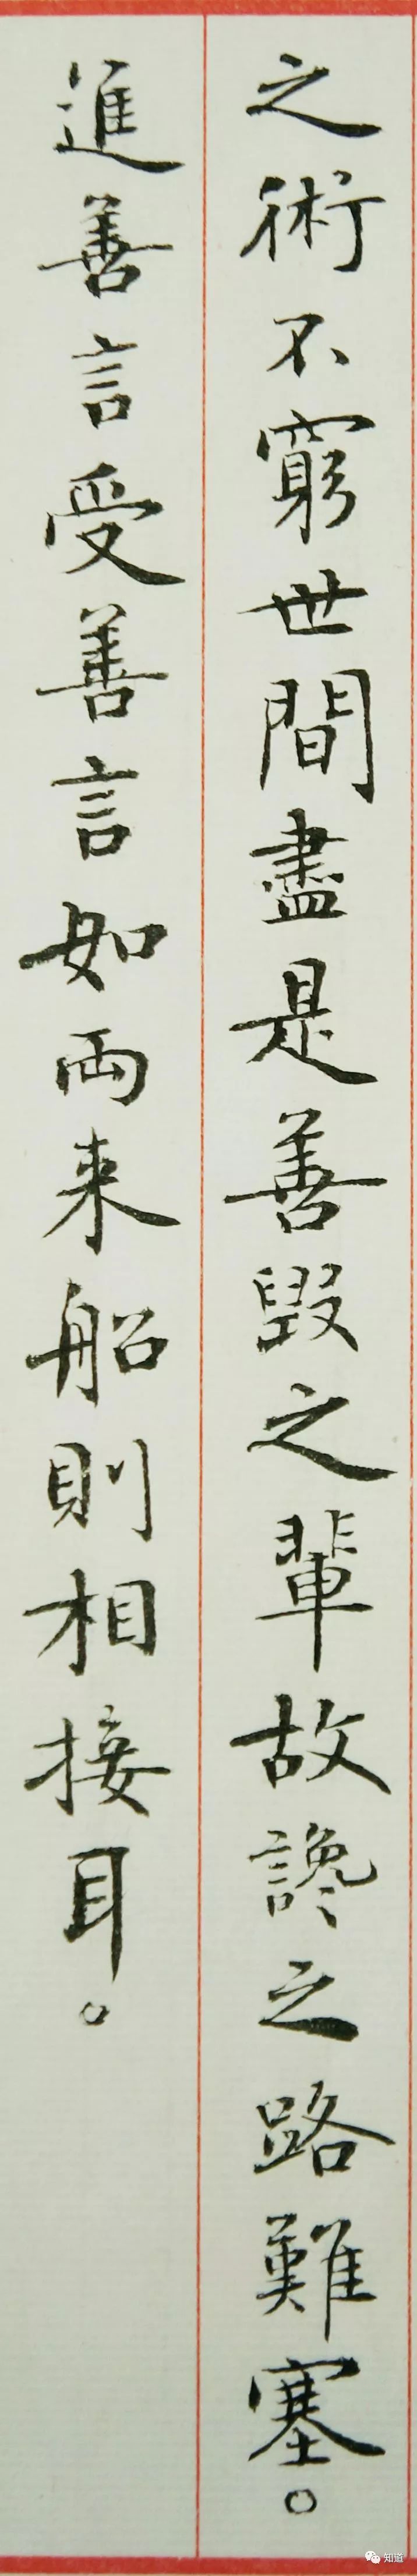 之術不窮世間盡是善毀之輩故讒之路難塞。
進善言受善言如両来船則相接耳。
知道